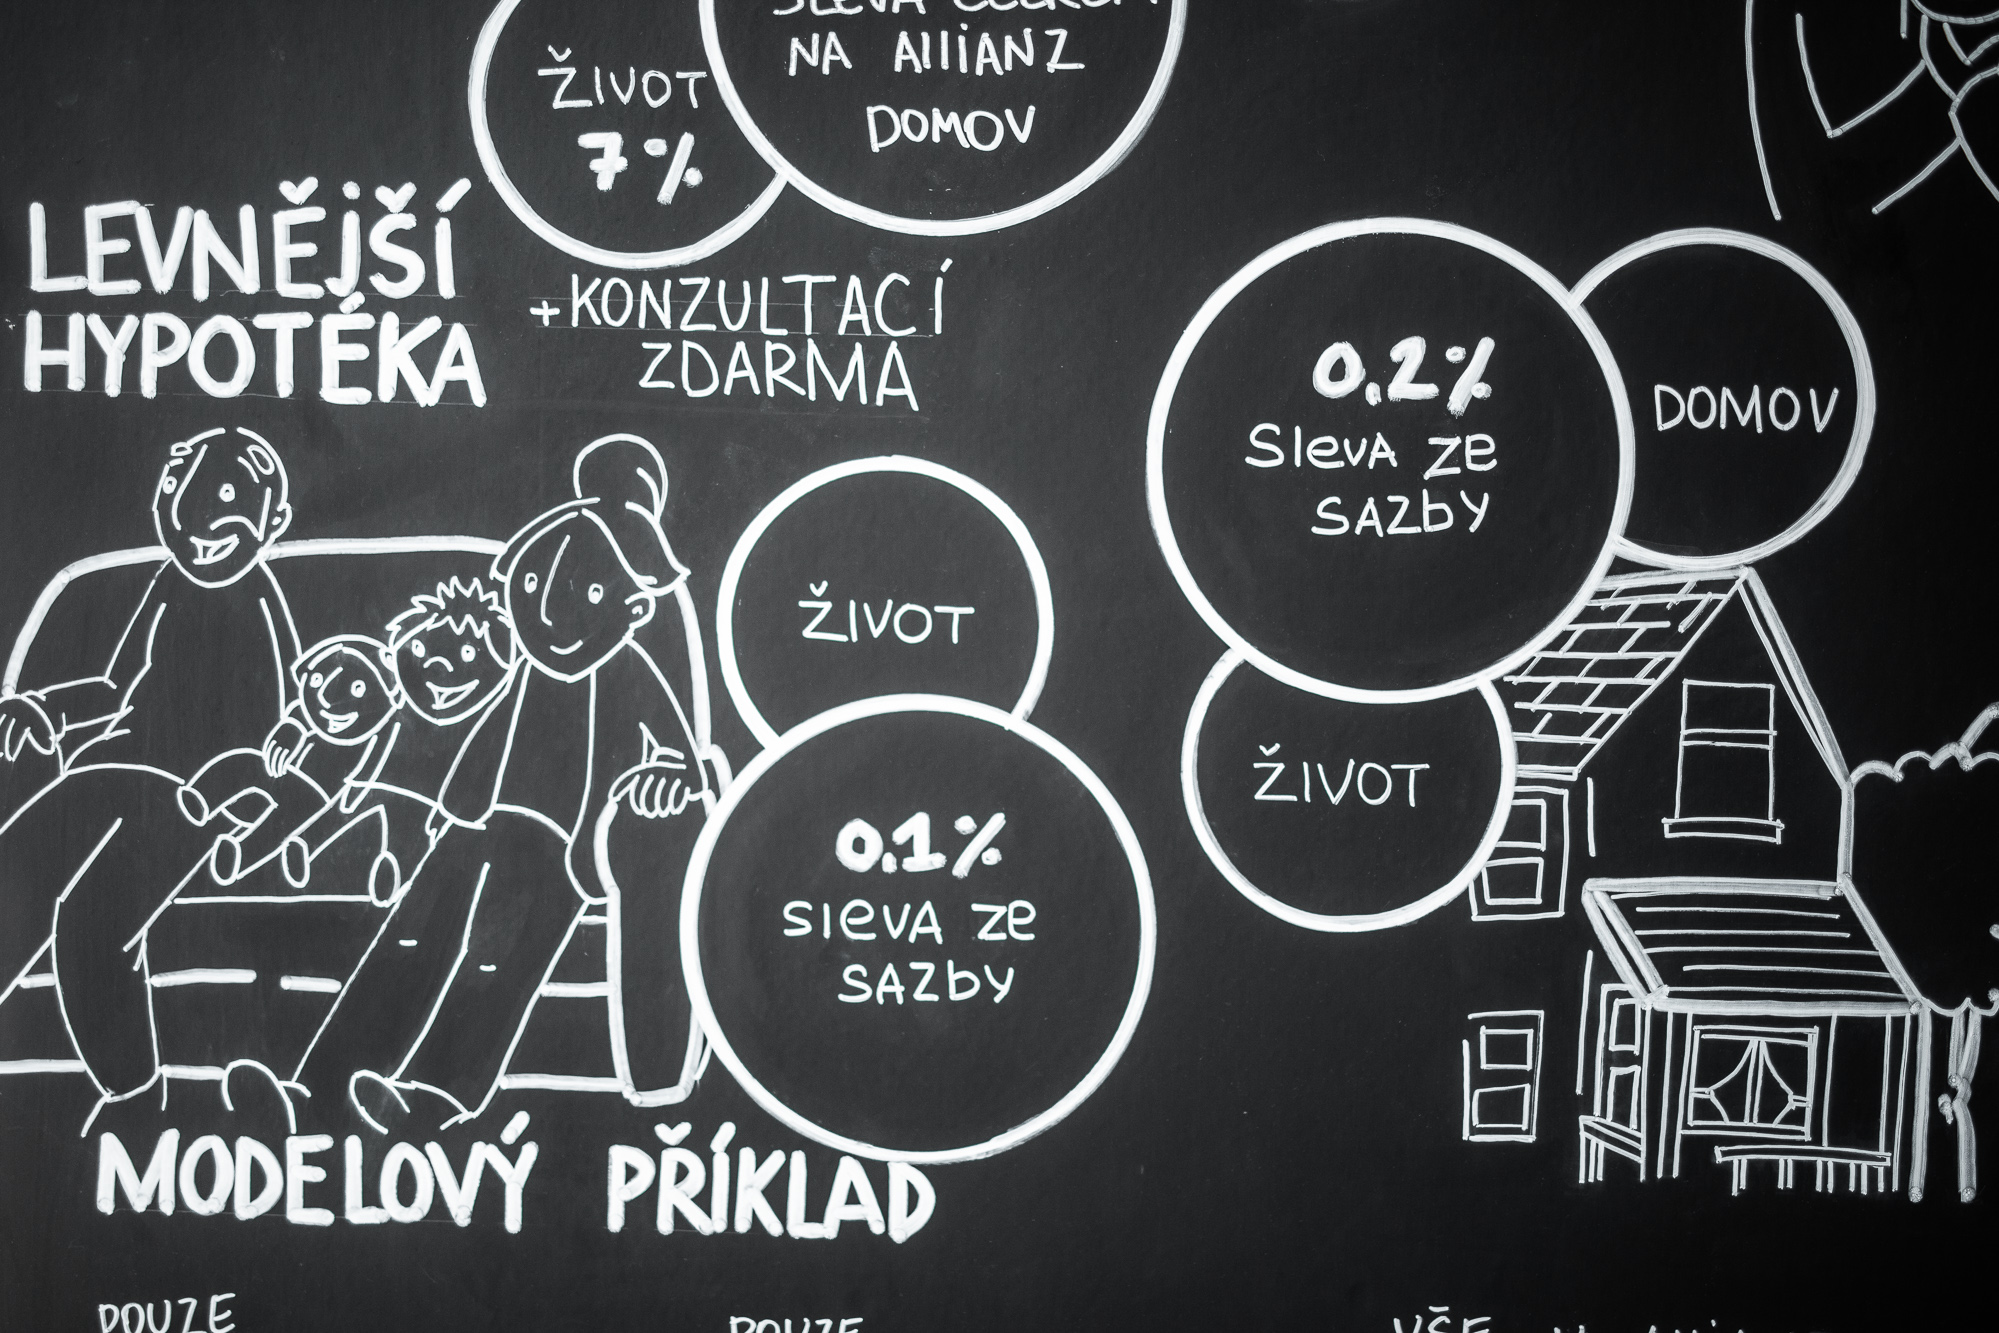 SLEVA CELKEM
NA AllIANZ
DOMOV
ŽIVOT
7%
LEVNĚJŠÍ
HYPOTÉKA
+KONZULTACÍ
ZDARMA
0,2%
Sleva ze
SAZbY
DOMOV
ŽIVOT
ŽIVOT
0,1%
sleva ze
SAZbY
MODELOVÝ PŘÍKLAD
POUZE
POUZE
VŠE